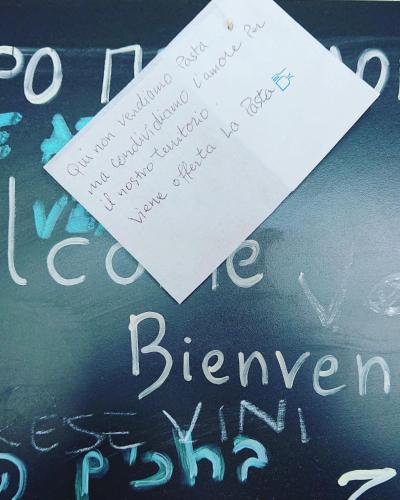 РО П
Qui non vendiamo Pasta
ma condividiamo l'amore per
il nostro territorio.
viene offerta la Pasta
lcome
Bienven
KESE VINI
ברוכים